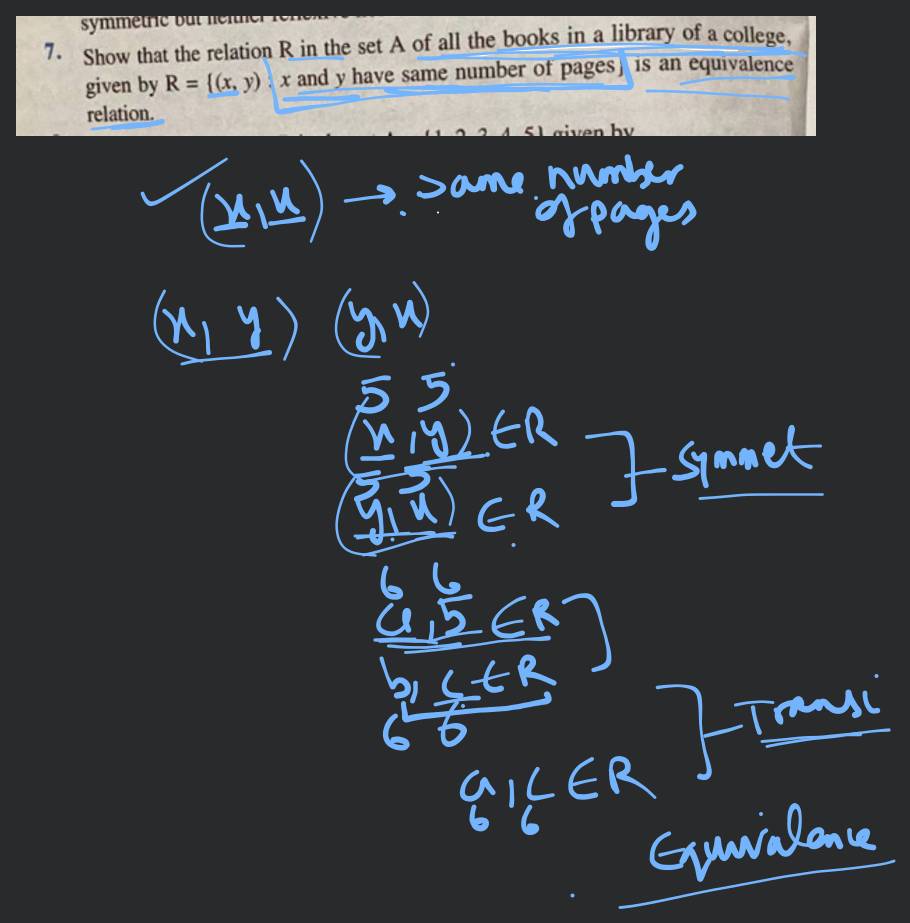 symmetric but neither
7. Show that the relation R in the set A of all the books in a library of a college,
given by R = {(x, y) : x and y have same number of pages} is an equivalence
relation.
5} given by
(x, x) → same number
of pages
(x, y) (y, x)
5 5
(x, y) ∈ R
5 5
(y, x) ∈ R
Symmet
6 6
a, b ∈ R
b, c ∈ R
6 6
Transi
a, c ∈ R
6 6
Equivalence